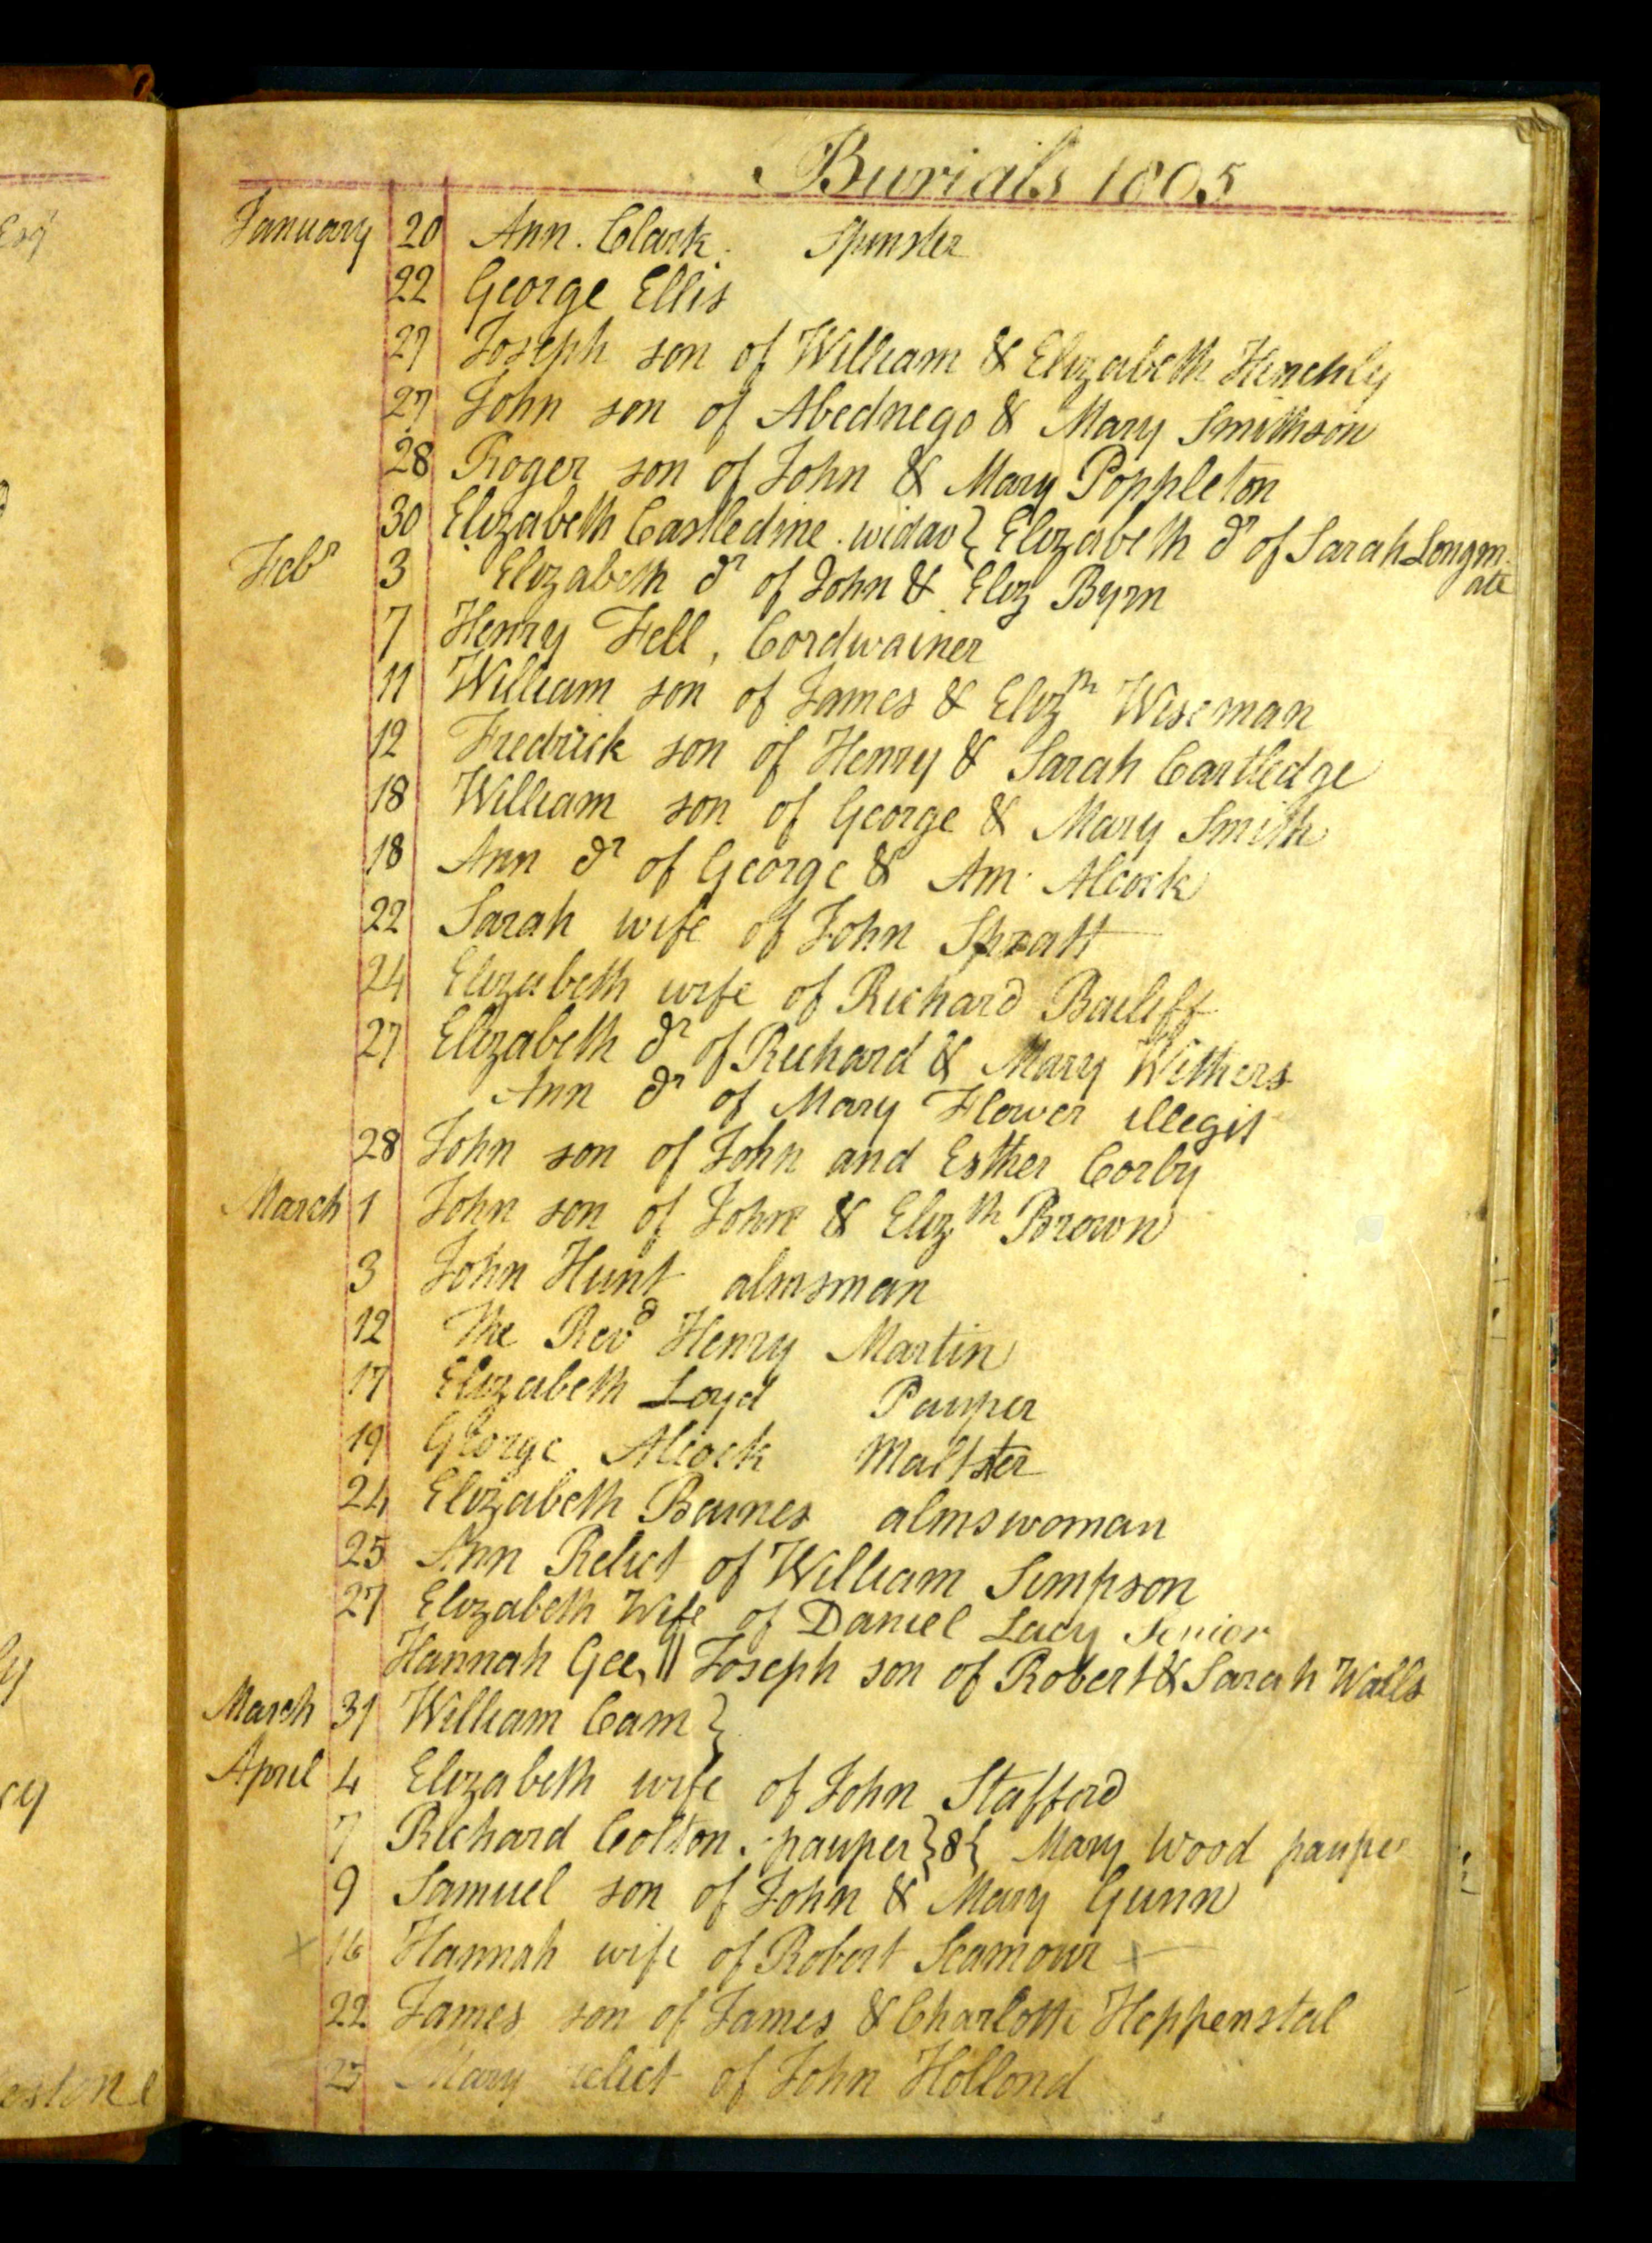 Burials 1805
January 20 Ann. Clark. Spinster
22 George Ellis
27 Joseph son of William & Elizabeth Hinchly
27 John son of Abednego & Mary Smithson
28 Roger son of John & Mary Poppleton
30 Elizabeth Castledine. widow } Elizabeth dr of Sarah Longm
ate
Febr 3 Elizabeth dr of John & Eliz Byrn
7 Henry Fell, Cordwainer
11 William son of James & Elizth Wiseman
12 Fredrick son of Henry & Sarah Cartledge
18 William son of George & Mary Smith
18 Ann dr of George & Ann Alcock
22 Sarah wife of John Spratt
24 Elizabeth wife of Richard Bailiff
27 Elizabeth dr of Richard & Mary Withers
Ann dr of Mary Flower illegit
28 John son of John and Esther Corby
March 1 John son of John & Elizth Brown
3 John Hunt almsman
12 The Revd Henry Martin
17 Elizabeth Loyd Pauper
19 George Alcock Maltster
24 Elizabeth Barnes almswoman
25 Ann Relict of William Simpson
27 Elizabeth Wife of Daniel Lacy Senior
Hannah Gee, || Joseph son of Robert & Sarah Walls
March 31 William Cam }
April 4 Elizabeth wife of John Stafford
7 Richard Colton. pauper } & { Mary Wood paupe
9 Samuel son of John & Mary Gunn
x 16 Hannah wife of Robert Seamour x
22 James son of James & Charlotte Heppenstal
23 Mary relict of John Hollond
Esq